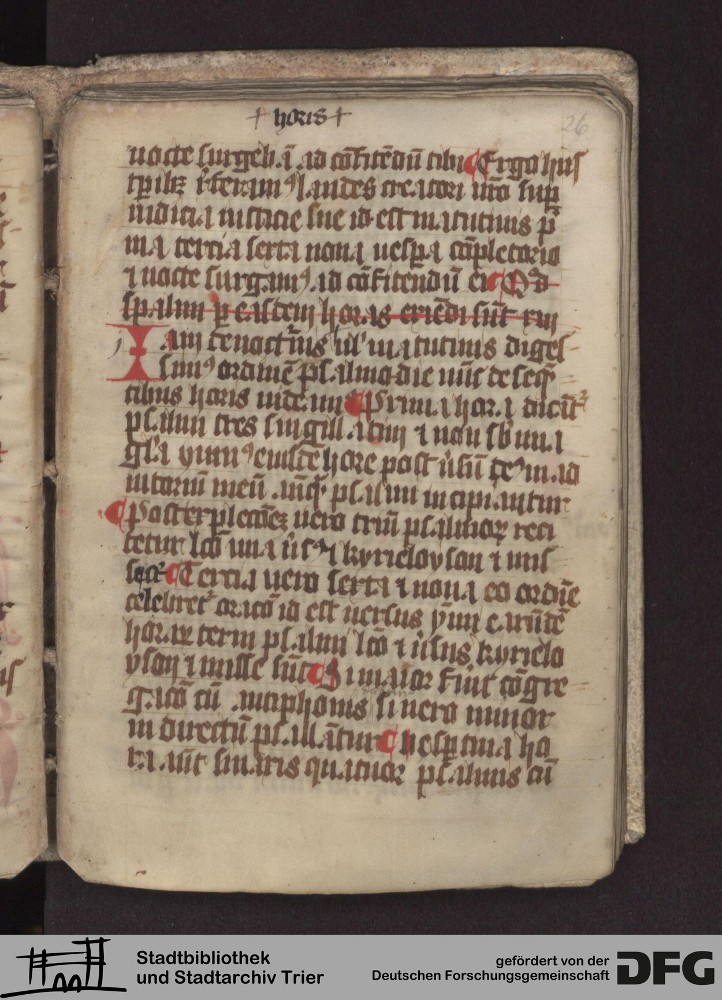 † horis †
26
nocte surgeb.ā .ad cōfitēdū tibi Ergo hus
tp̄ibꝫ r̄feram⁹ laudes creatori nr̄o sup̄
iudicia iusticie sue id est matutinis p̄
ma tercia sexta nona uesp̄a cōpletorio
⁊ nocte surgam⁹ ad cōfitendū ei Qd̄
psalmi p eastem horas
Iam de noct̄nis ul' matutinis diges
sim⁹ ordinē psalmodie nūc de seq̄
tibus horis uidem Prima hora dicūt̄
psalmi tres singillatim ⁊ non sb una
gl'a ymn⁹ eiusdē hore post
iutoriū meū .anq̄ psalmi incipiantur
Post expletōeꝫ uero triū psalmoꝝ reci
tetur lcō una ⁊ kyrieloyson ⁊ mis
Tercia uero sexta ⁊ nona eo ordīe
celebret̄ oracō id est uersus ymni earūdē
horaꝝ terni psalmi lcō ⁊ kyrielo
yson ⁊ misse sūt Si maior fūit cōgre
gacō cū .antiphonis si uero minor
in directū psallātur Uesptina ho
ra aūt sinaxis quatuor psalmis cū
Stadtbibliothek
und Stadtarchiv Trier
gefördert von der
Deutschen Forschungsgemeinschaft
DFG